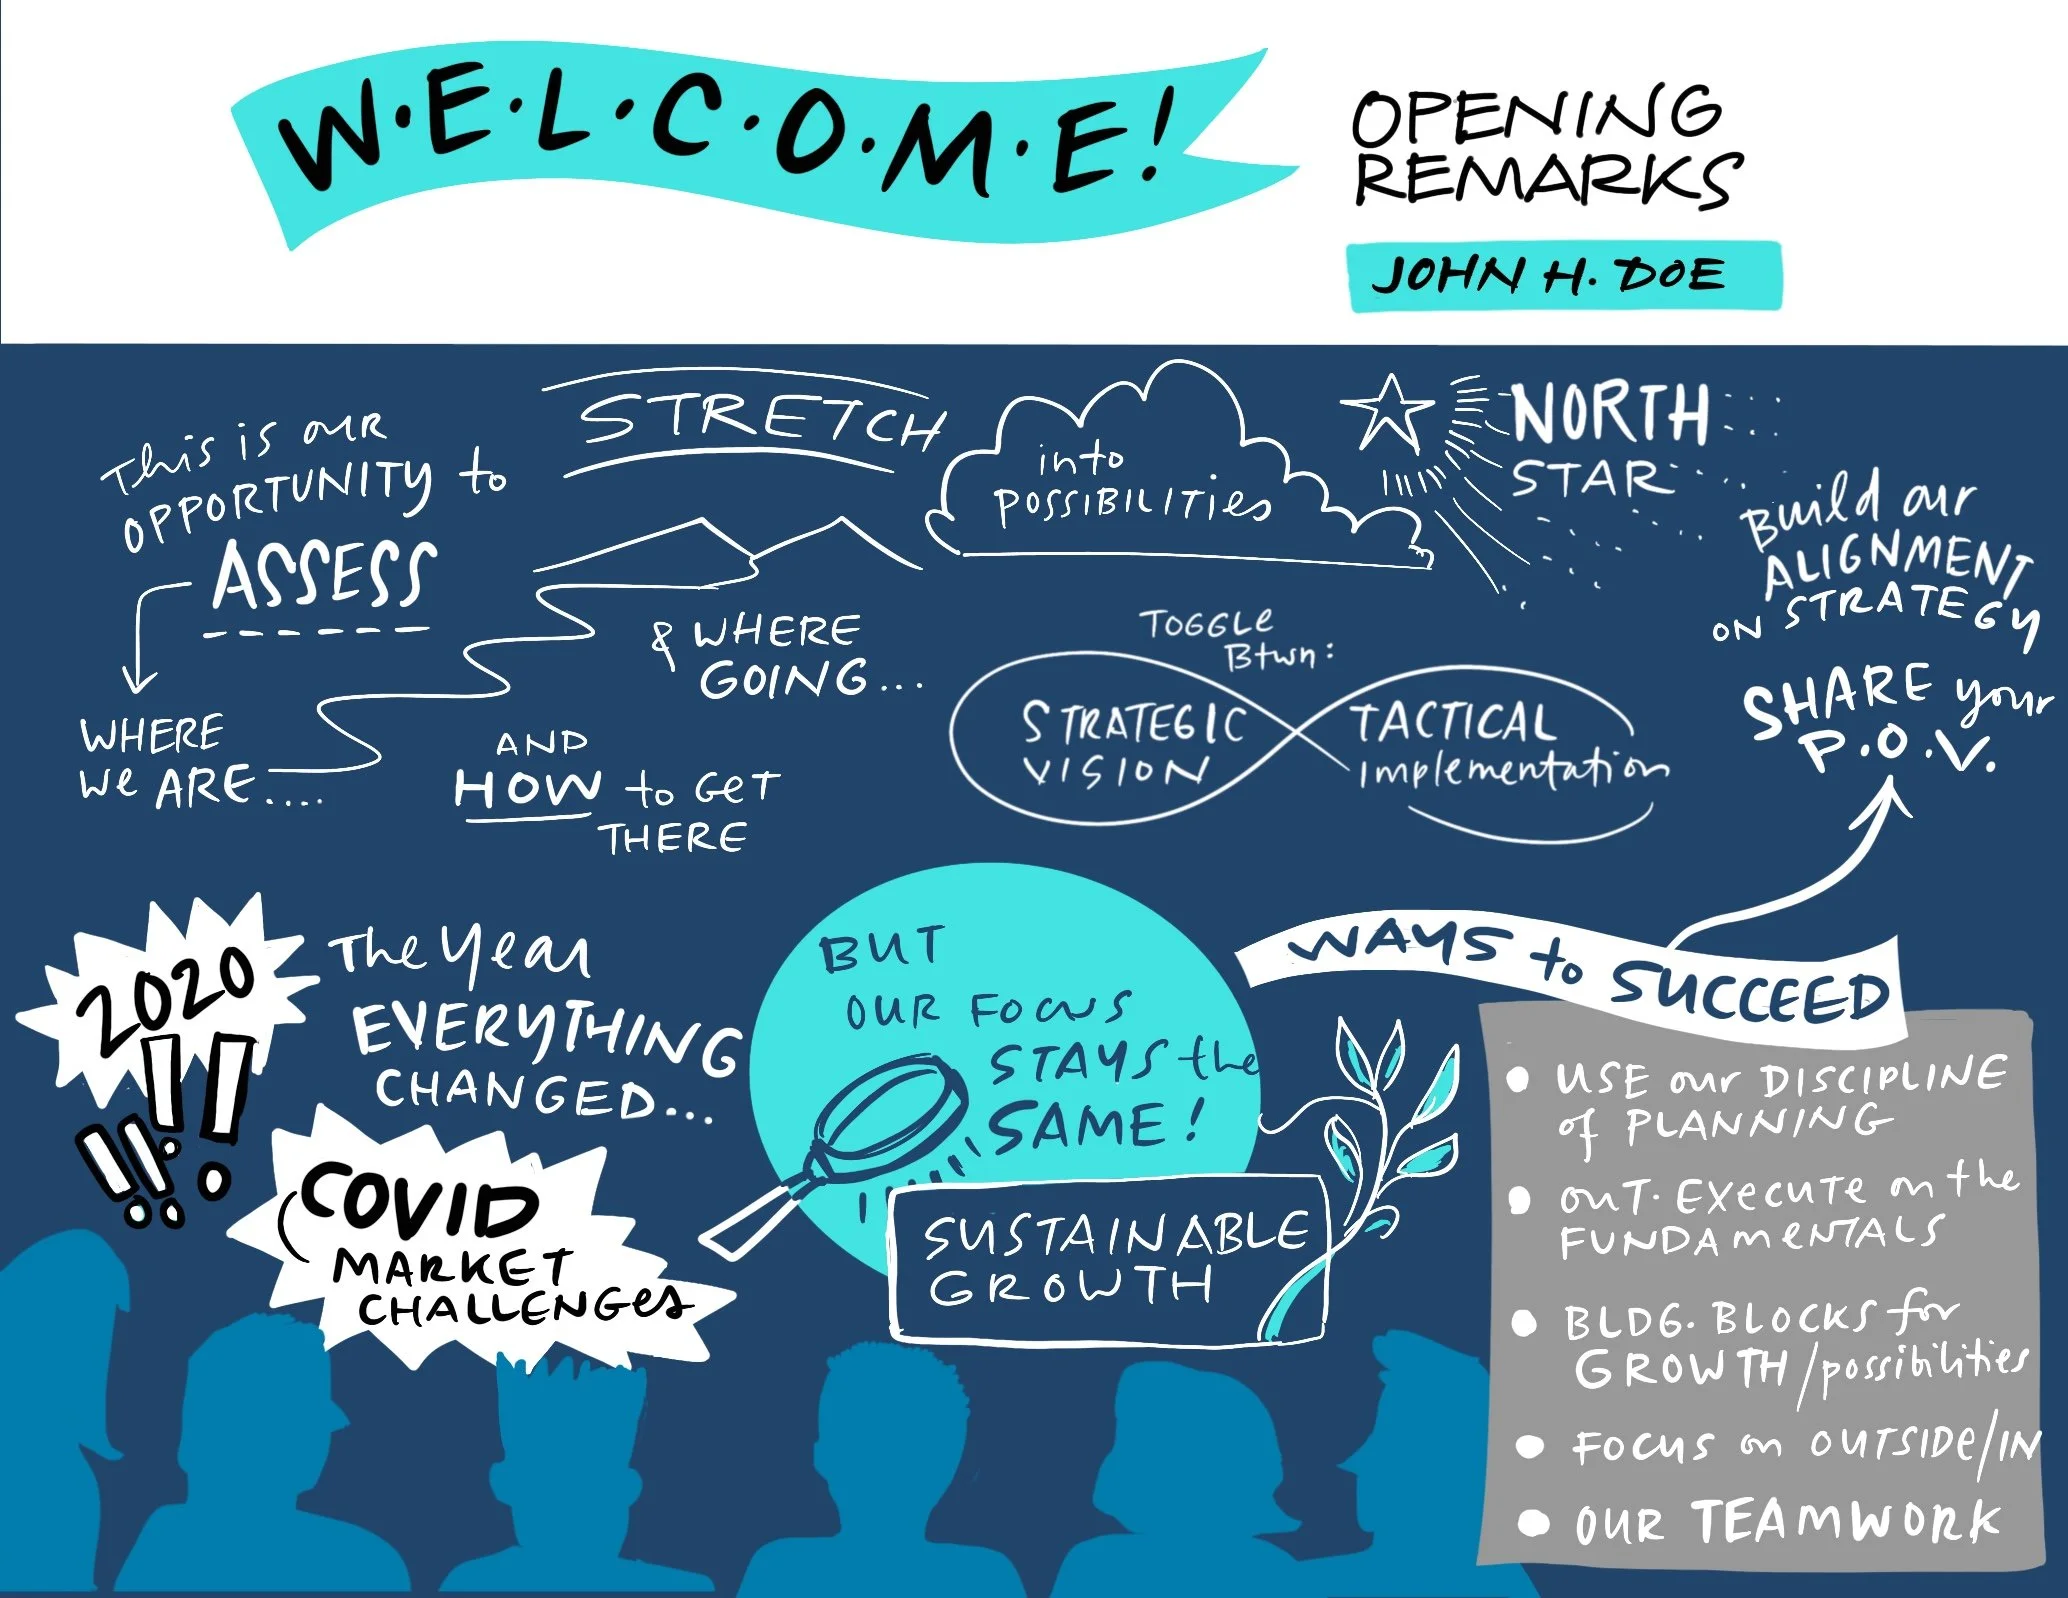 W·E·L·C·O·M·E!
OPENING
REMARKS
JOHN H. DOE
This is our
OPPORTUNITY to
ASSESS
WHERE
we ARE....
& WHERE
GOING...
AND
HOW to GET
THERE
STRETCH
into
POSSIBILITIES
NORTH
STAR
Build our
ALIGNMENT
ON STRATEGY
SHARE your
P.O.V.
TOGGLE
Btwn:
STRATEGIC
VISION
TACTICAL
implementation
2020
!!
!!!
The Year
EVERYTHING
CHANGED...
COVID
MARKET
CHALLENGES
BUT
OUR FOCUS
STAYS the
SAME!
SUSTAINABLE
GROWTH
WAYS to SUCCEED
• USE our DISCIPLINE
of PLANNING
• OUT-EXECUTE on the
FUNDAMENTALS
• BLDG. BLOCKS for
GROWTH/possibilities
• FOCUS on OUTSIDE/IN
• OUR TEAMWORK